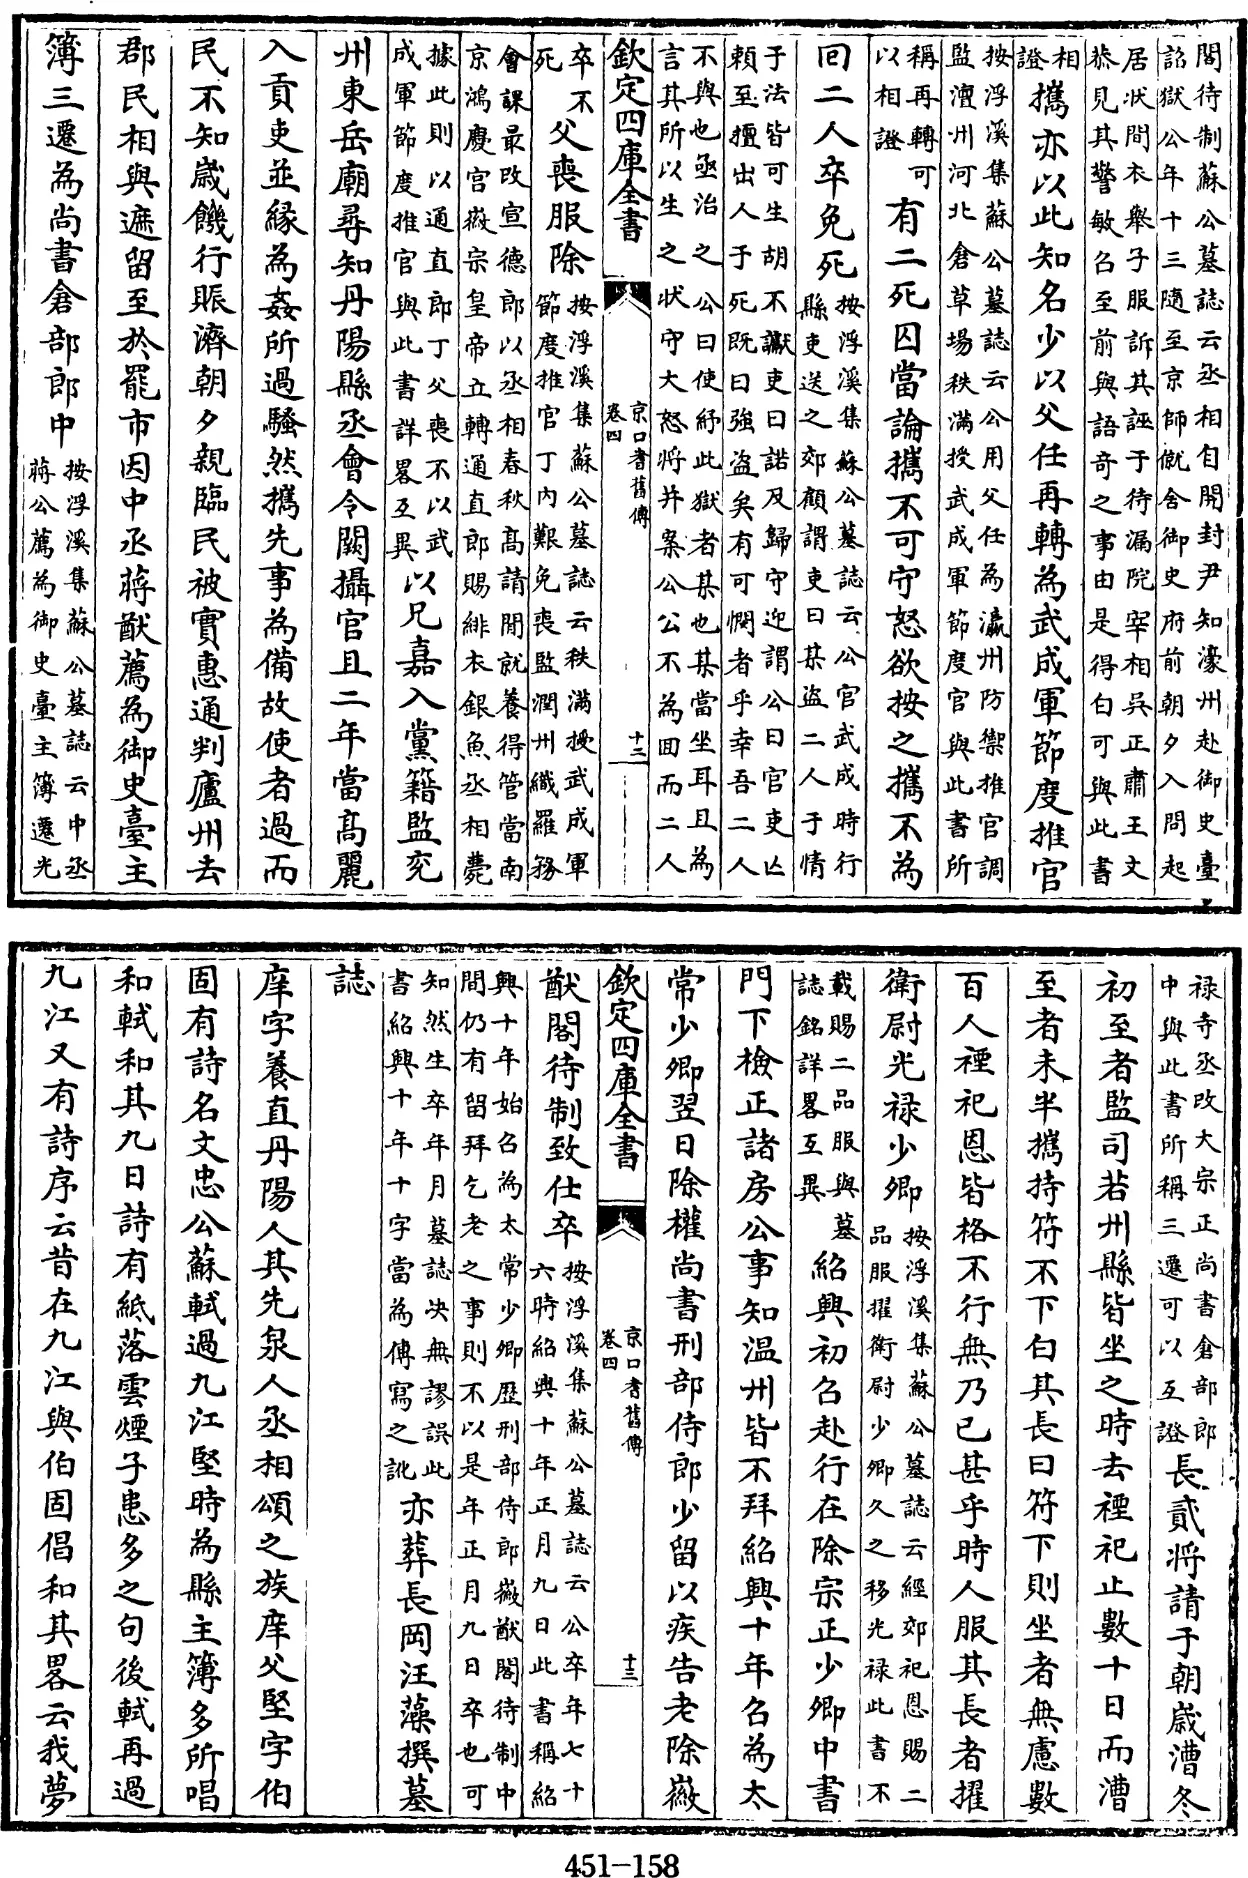 閣待制蘇公墓誌云丞相自開封尹知濠州赴御史臺
詔獄公年十三隨至京師僦舍御史府前朝夕入問起
居状間衣舉子服訴其誣于待漏院宰相吳正肅王文
恭見其警敏召至前與語奇之事由是得白可與此書
相
證
攜亦以此知名少以父任再轉為武成軍節度推官
按浮溪集蘇公墓誌云公用父任為瀛州防禦推官調
監澶州河北倉草場秩滿授武成軍節度官與此書所
稱再轉可
以相證
有二死囚當論攜不可守怒欲按之攜不為
回二人卒免死
按浮溪集蘇公墓誌云公官武成時行
縣吏送之郊顧謂吏曰某盜二人于情
于法皆可生胡不讞吏曰諾及歸守迎謂公曰官吏亡
賴至擅出人于死既曰強盜矣有可憫者乎幸吾二人
不與也亟治之公曰使紓此獄者某也某當坐耳且為
言其所以生之状守大怒將并案公公不為囬而二人
欽定四庫全書
京口耆舊傳
卷四
十二
卒不
死
父喪服除
按浮溪集蘇公墓誌云秩滿授武成軍
節度推官丁内艱免喪監潤州織羅務
會課最改宣德郎以丞相春秋髙請閒就養得管當南
京鴻慶宮徽宗皇帝立轉通直郎賜緋衣銀魚丞相薨
據此則以通直郎丁父喪不以武
成軍節度推官與此書詳畧互異
以兄嘉入黨籍監兖
州東岳廟尋知丹陽縣丞會令闕攝官且二年當髙麗
入貢吏並緣為姦所過騷然攜先事為備故使者過而
民不知歳饑行賑濟朝夕親臨民被實惠通判廬州去
郡民相與遮留至於罷市因中丞蔣猷薦為御史臺主
簿三遷為尚書倉部郎中
按浮溪集蘇公墓誌云中丞
蔣公薦為御史臺主簿遷光
禄寺丞改大宗正尚書倉部郎
中與此書所稱三遷可以互證
長貳將請于朝歳漕冬
初至者監司若州縣皆坐之時去禋祀止數十日而漕
至者未半攜持符不下白其長曰符下則坐者無慮數
百人禋祀恩皆格不行無乃已甚乎時人服其長者擢
衛尉光禄少卿
按浮溪集蘇公墓誌云經郊祀恩賜二
品服擢衛尉少卿久之移光禄此書不
載賜二品服與墓
誌銘詳畧互異
紹興初召赴行在除宗正少卿中書
門下檢正諸房公事知温州皆不拜紹興十年召為太
常少卿翌日除權尚書刑部侍郎少留以疾告老除徽
欽定四庫全書
京口耆舊傳
卷四
十三
猷閣待制致仕卒
按浮溪集蘇公墓誌云公卒年七十
六時紹興十年正月九日此書稱紹
興十年始召為太常少卿歴刑部侍郎徽猷閣待制中
間仍有留拜乞老之事則不以是年正月九日卒也可
知然生卒年月墓誌決無謬誤此
書紹興十年十字當為傳寫之訛
亦葬長岡汪藻撰墓
誌
庠字養直丹陽人其先泉人丞相頌之族庠父堅字伯
固有詩名文忠公蘇軾過九江堅時為縣主簿多所唱
和軾和其九日詩有紙落雲煙子患多之句後軾再過
九江又有詩序云昔在九江與伯固倡和其畧云我夢
451-158